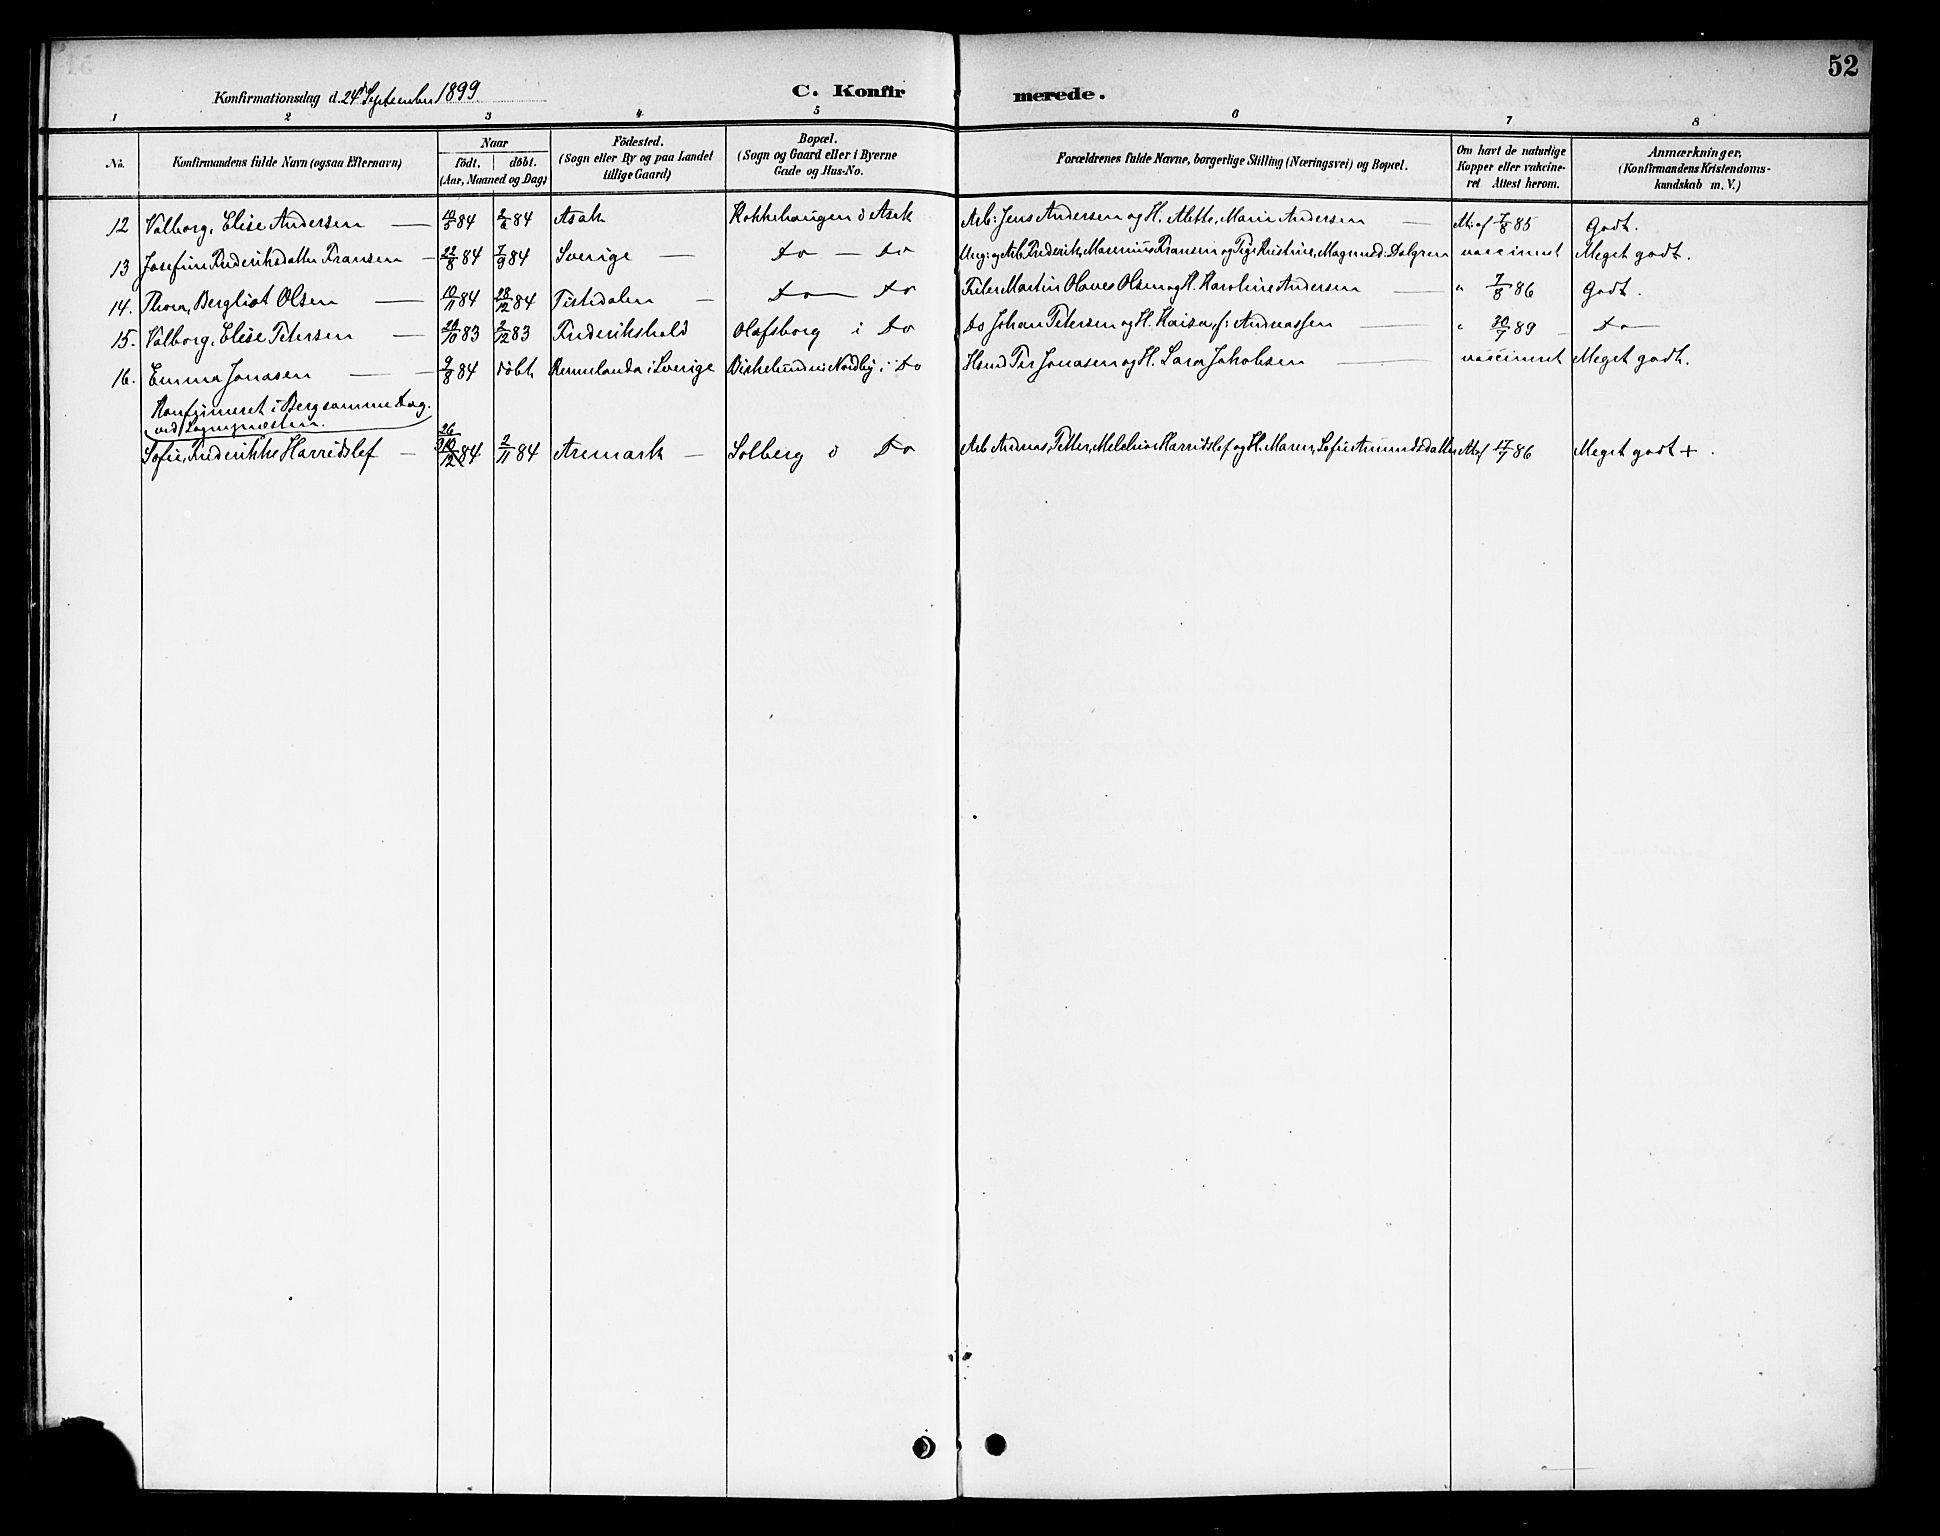 52
Konfirmationsdag d. 24de September 1899
C. Konfirmerede.
1 2 3 4 5 6 7 8
No. Konfirmandens fulde Navn (ogsaa Efternavn) Naar født. | døbt. (Aar, Maaned og Dag) Fødested. (Sogn eller By og paa Landet tillige Gaard) Bopæl. (Sogn og Gaard eller i Byerne Gade og Hus-No. Forældrenes fulde Navne, borgerlige Stilling (Næringsvei) og Bopæl. Om havt de naturlige Kopper eller vakcineret Attest herom. Anmærkninger, (Konfirmandens Kristendomskundskab m. V.)
12 Valborg, Elise Andersen — 84 84 Asak Kokkehaugen i Asak Arb: Jens Andersen og H. Mette, Marie Andersen — At: af 7/8 85 Godt.
13 Josefine Frederiksdatter Fransen — 22/8 84 7/9 84 Sverige — Do — Do Ung: og Arb Frederik, Marenius Fransen og Pige Kristine, Magnusd: Dalgren vaccineret Meget godt.
14. Thora, Bergliot Olsen — 10/11 84 28/12 84 Tistedalen — Do — Do Filer Martin Olaves Olsen og H. Karoline Andersen — " 7/8 86 Godt.
15. Valborg, Elise Petersen — 83 2/12 83 Frederikshald Olafsborg i Do Do Johan Petersen og H. Kaisa, f: Andreassen — " 30/7 89 — Do —
16. Emma Jonasen — 9/8 84 døbt Rennelanda i Sverige Birkelunden Nordby i Do Hsmd Per Jonasen og H. Sara Jakobsen — vaccineret Meget godt.
Konfirmeret i Berg samme Dag.
ved Sognepræsten.
Sofie, Frederikke Harridslef — 26 84 2/11 84 Aremark — Solberg i Do Arb Andreas, Petter, Melchior Harridslef og H. Maren, Sofie Amundsdatter At: af 17/7 86 Meget godt + .